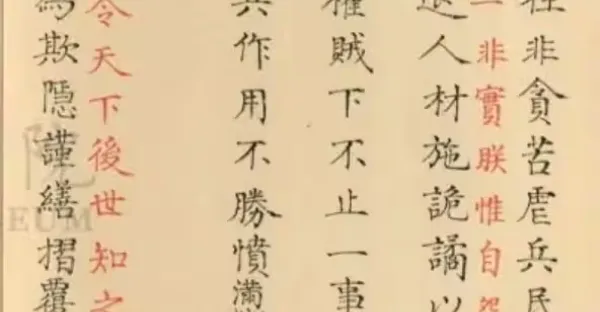 非貪苦虐兵民
一非實朕惟自怨
人材施詭譎以
賊下不止一事
兵作用不勝憤懣
令天下後世知之
為欺隱謹繕摺覆
院
EUM